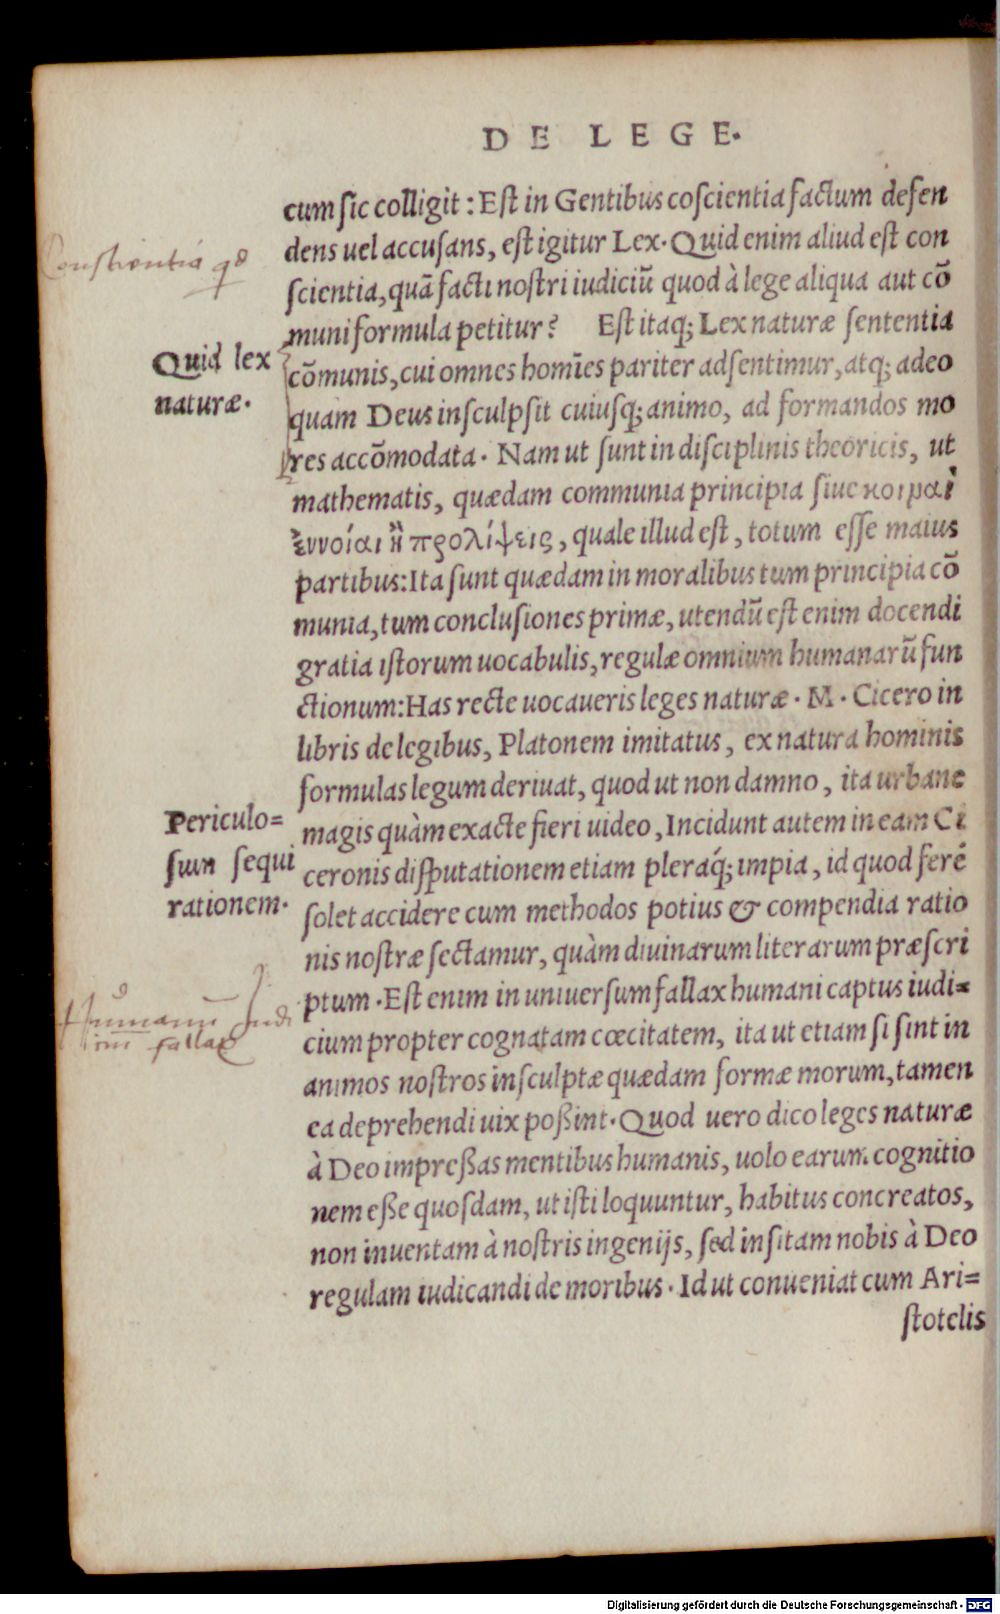 DE LEGE.
cum sic colligit: Est in Gentibus coscientia factum defen
dens uel accusans, est igitur Lex. Quid enim aliud est con
Conscientia qd
scientia, quā facti nostri iudiciū quod à lege aliqua aut cō
muni formula petitur? Est itaq; Lex naturæ sententia
Quid lex
naturæ.
cōmunis, cui omnes homīes pariter adsentimur, atq; adeo
quam Deus insculpsit cuiusq; animo, ad formandos mo
res accōmodata. Nam ut sunt in disciplinis theoricis, ut
mathematis, quædam communia principia siue κοιμαὶ
ἔννοίαι ἢ προλίψεις, quale illud est, totum esse maius
partibus: Ita sunt quædam in moralibus tum principia cō
munia, tum conclusiones primæ, utendū est enim docendi
gratia istorum uocabulis, regulæ omnium humanarū fun
ctionum: Has recte uocaueris leges naturæ. M. Cicero in
libris de legibus, Platonem imitatus, ex natura hominis
formulas legum deriuat, quod ut non damno, ita urbane
Periculo=
sum sequi
rationem.
magis quàm exacte fieri uideo, Incidunt autem in eam Ci
ceronis disputationem etiam pleráq; impia, id quod ferè
solet accidere cum methodos potius & compendia ratio
nis nostræ sectamur, quàm diuinarum literarum præscri
ptum. Est enim in uniuersum fallax humani captus iudi=
Humanū iudi
iū fallax
cium propter cognatam cœcitatem, ita ut etiam si sint in
animos nostros insculptæ quædam formæ morum, tamen
ea deprehendi uix poßint. Quod uero dico leges naturæ
à Deo impreßas mentibus humanis, uolo earum cognitio
nem eße quosdam, ut isti loquuntur, habitus concreatos,
non inuentam à nostris ingenijs, sed insitam nobis à Deo
regulam iudicandi de moribus. Id ut conueniat cum Ari=
stotelis
Digitalisierung gefördert durch die Deutsche Forschungsgemeinschaft - DFG